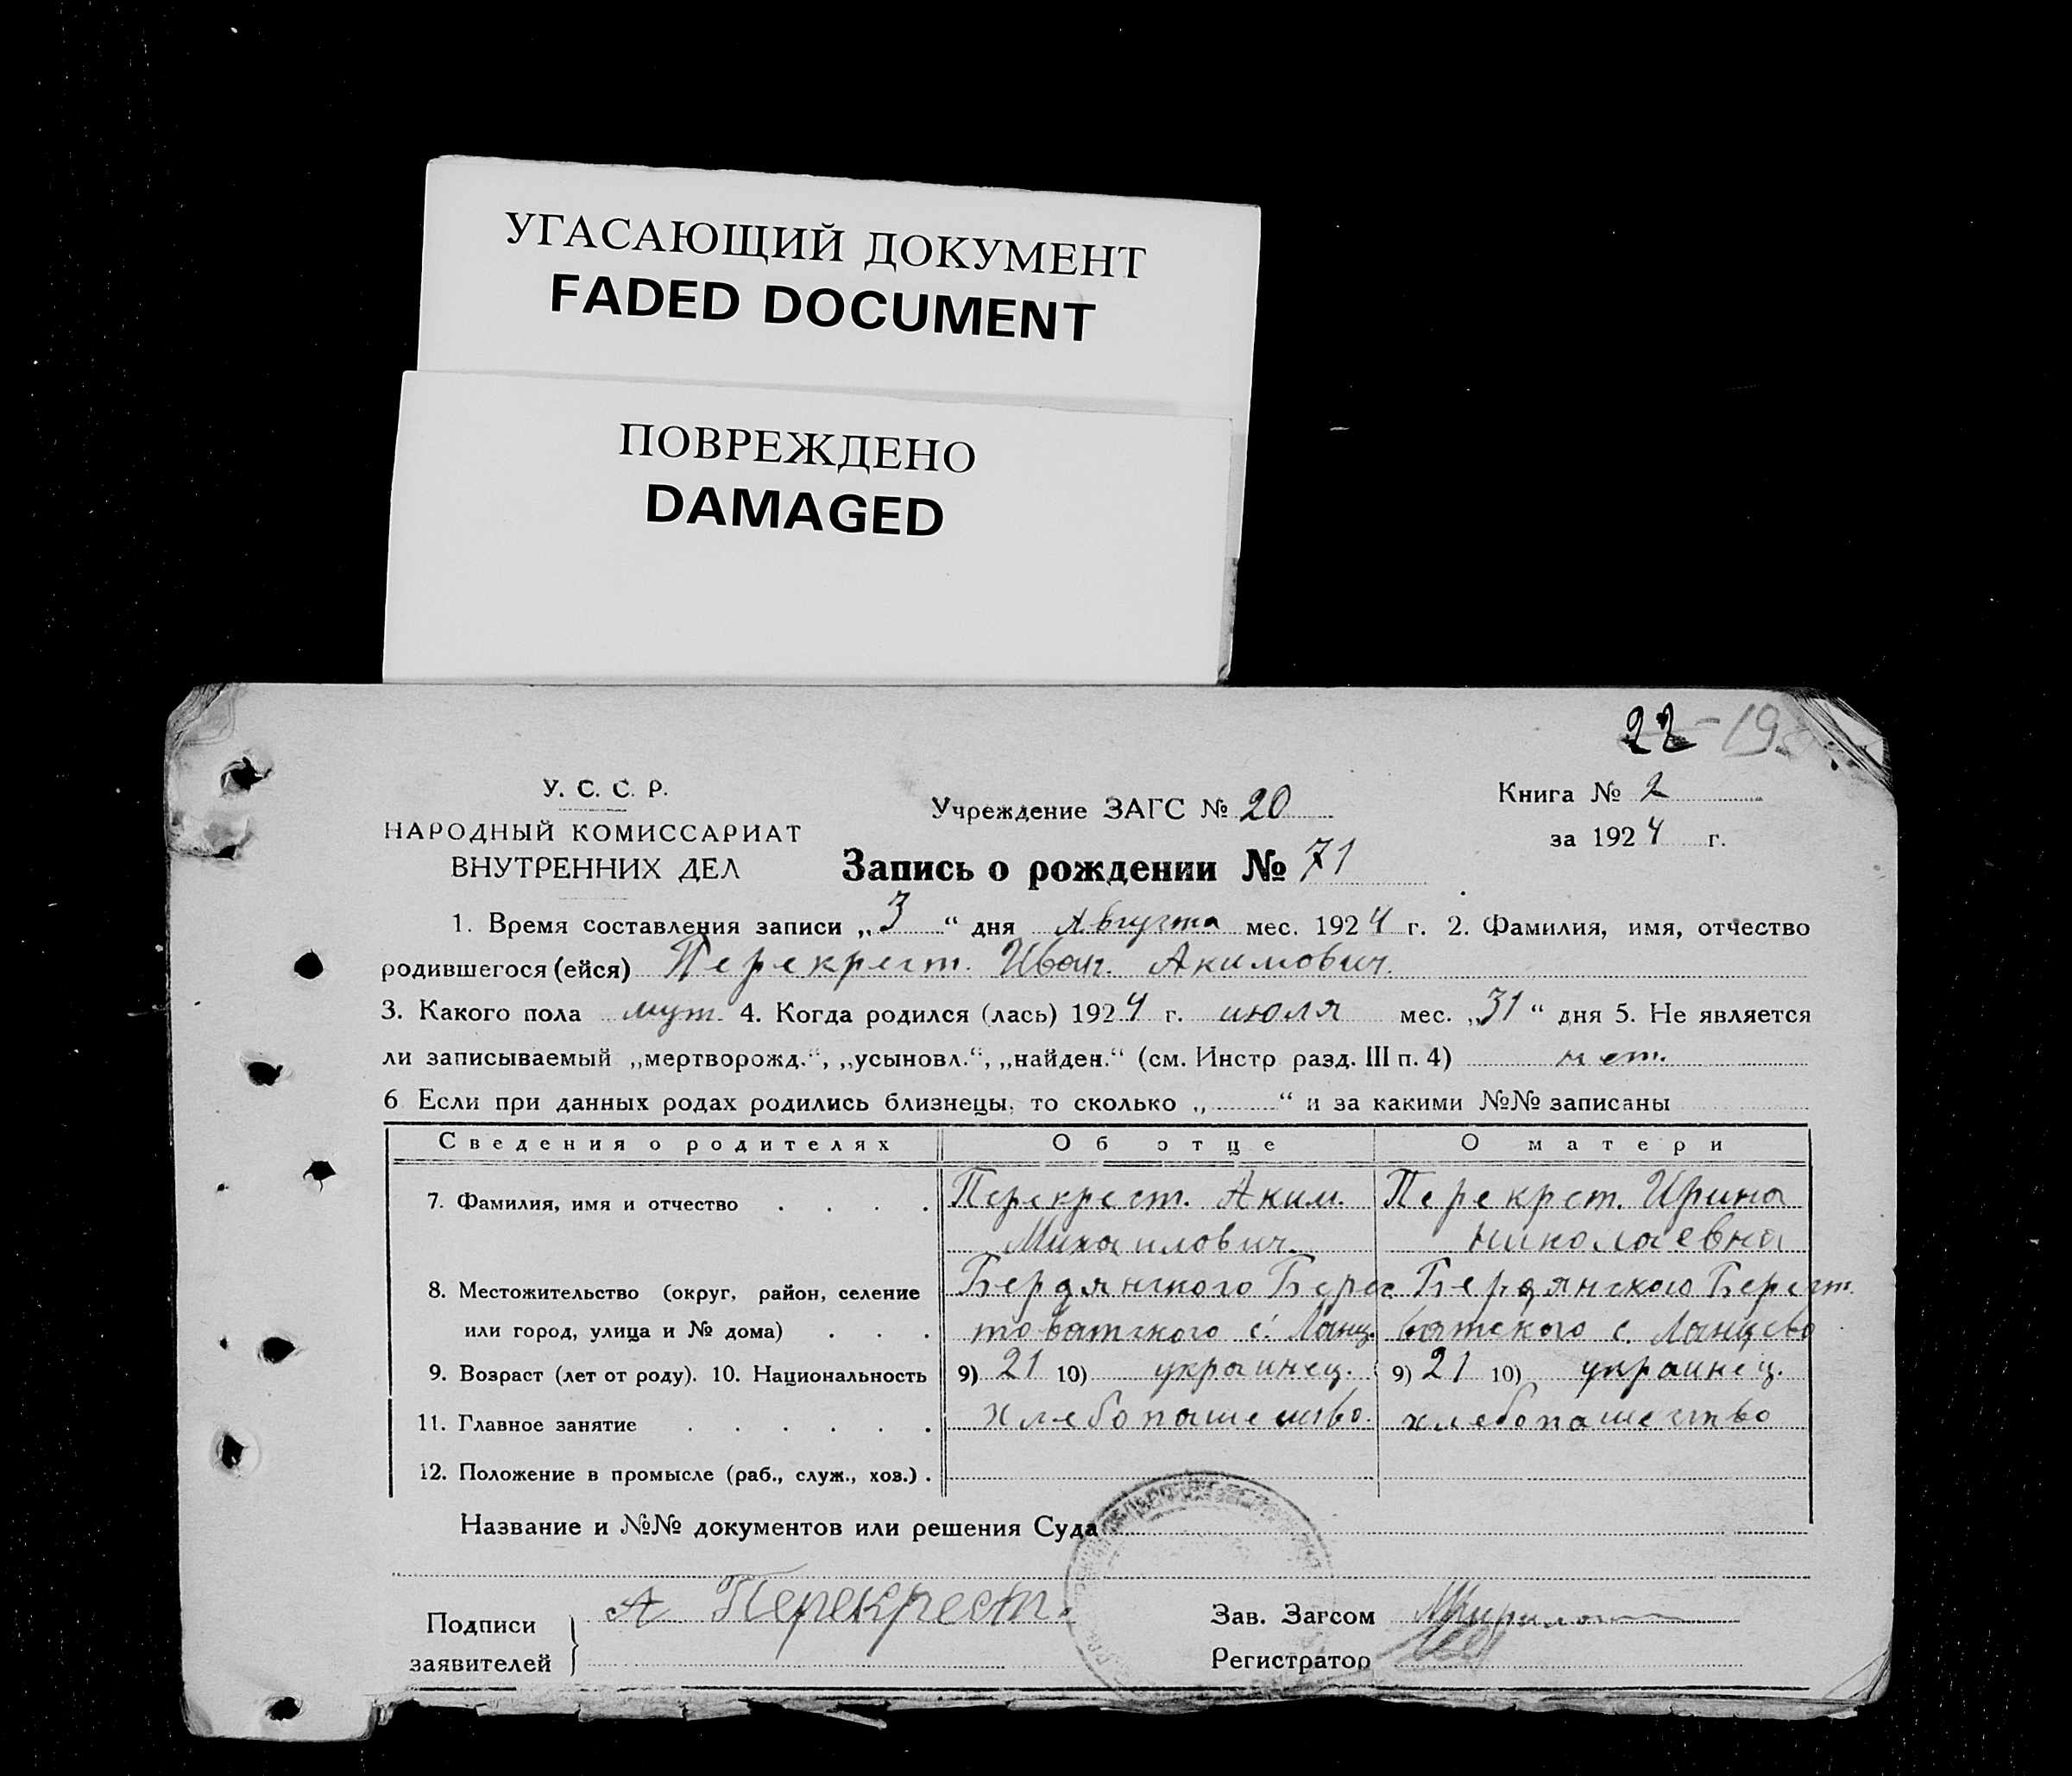 УГАСАЮЩИЙ ДОКУМЕНТ
FADED DOCUMENT
ПОВРЕЖДЕНО
DAMAGED
22 - 19
У. С. С. Р.
НАРОДНЫЙ КОМИССАРИАТ
ВНУТРЕННИХ ДЕЛ
Учреждение ЗАГС № 20
Запись о рождении № 71
Книга № 2
за 1924 г.
1. Время составления записи „3“ дня Августа мес. 1924 г. 2. Фамилия, имя, отчество
родившегося (ейся) Перекрест. Иван. Акимович.
3. Какого пола муж. 4. Когда родился (лась) 1924 г. июля мес. „31“ дня 5. Не является
ли записываемый „мертворожд.“, „усыновл.“, „найден.“ (см. Инстр разд. III п. 4) нет.
6 Если при данных родах родились близнецы, то сколько „ “ и за какими №№ записаны
Сведения о родителях Об отце О матери
7. Фамилия, имя и отчество . . . . Перекрест. Аким. Перекрст. Ирина
Михаилович. Николаевна
8. Местожительство (округ, район, селение Бердянского Берес Бердянского Берест.
или город, улица и № дома) . . . товатского с. Ланц. ватского с. Ланцево
9. Возраст (лет от роду). 10. Национальность 9) 21 10) украинец. 9) 21 10) украинец.
11. Главное занятие . . . . . . Хлебопашество. хлебопашество
12. Положение в промысле (раб., служ., хоз.) .
Название и №№ документов или решения Суда
Подписи
заявителей
А Перекрест.
Зав. Загсом
Регистратор